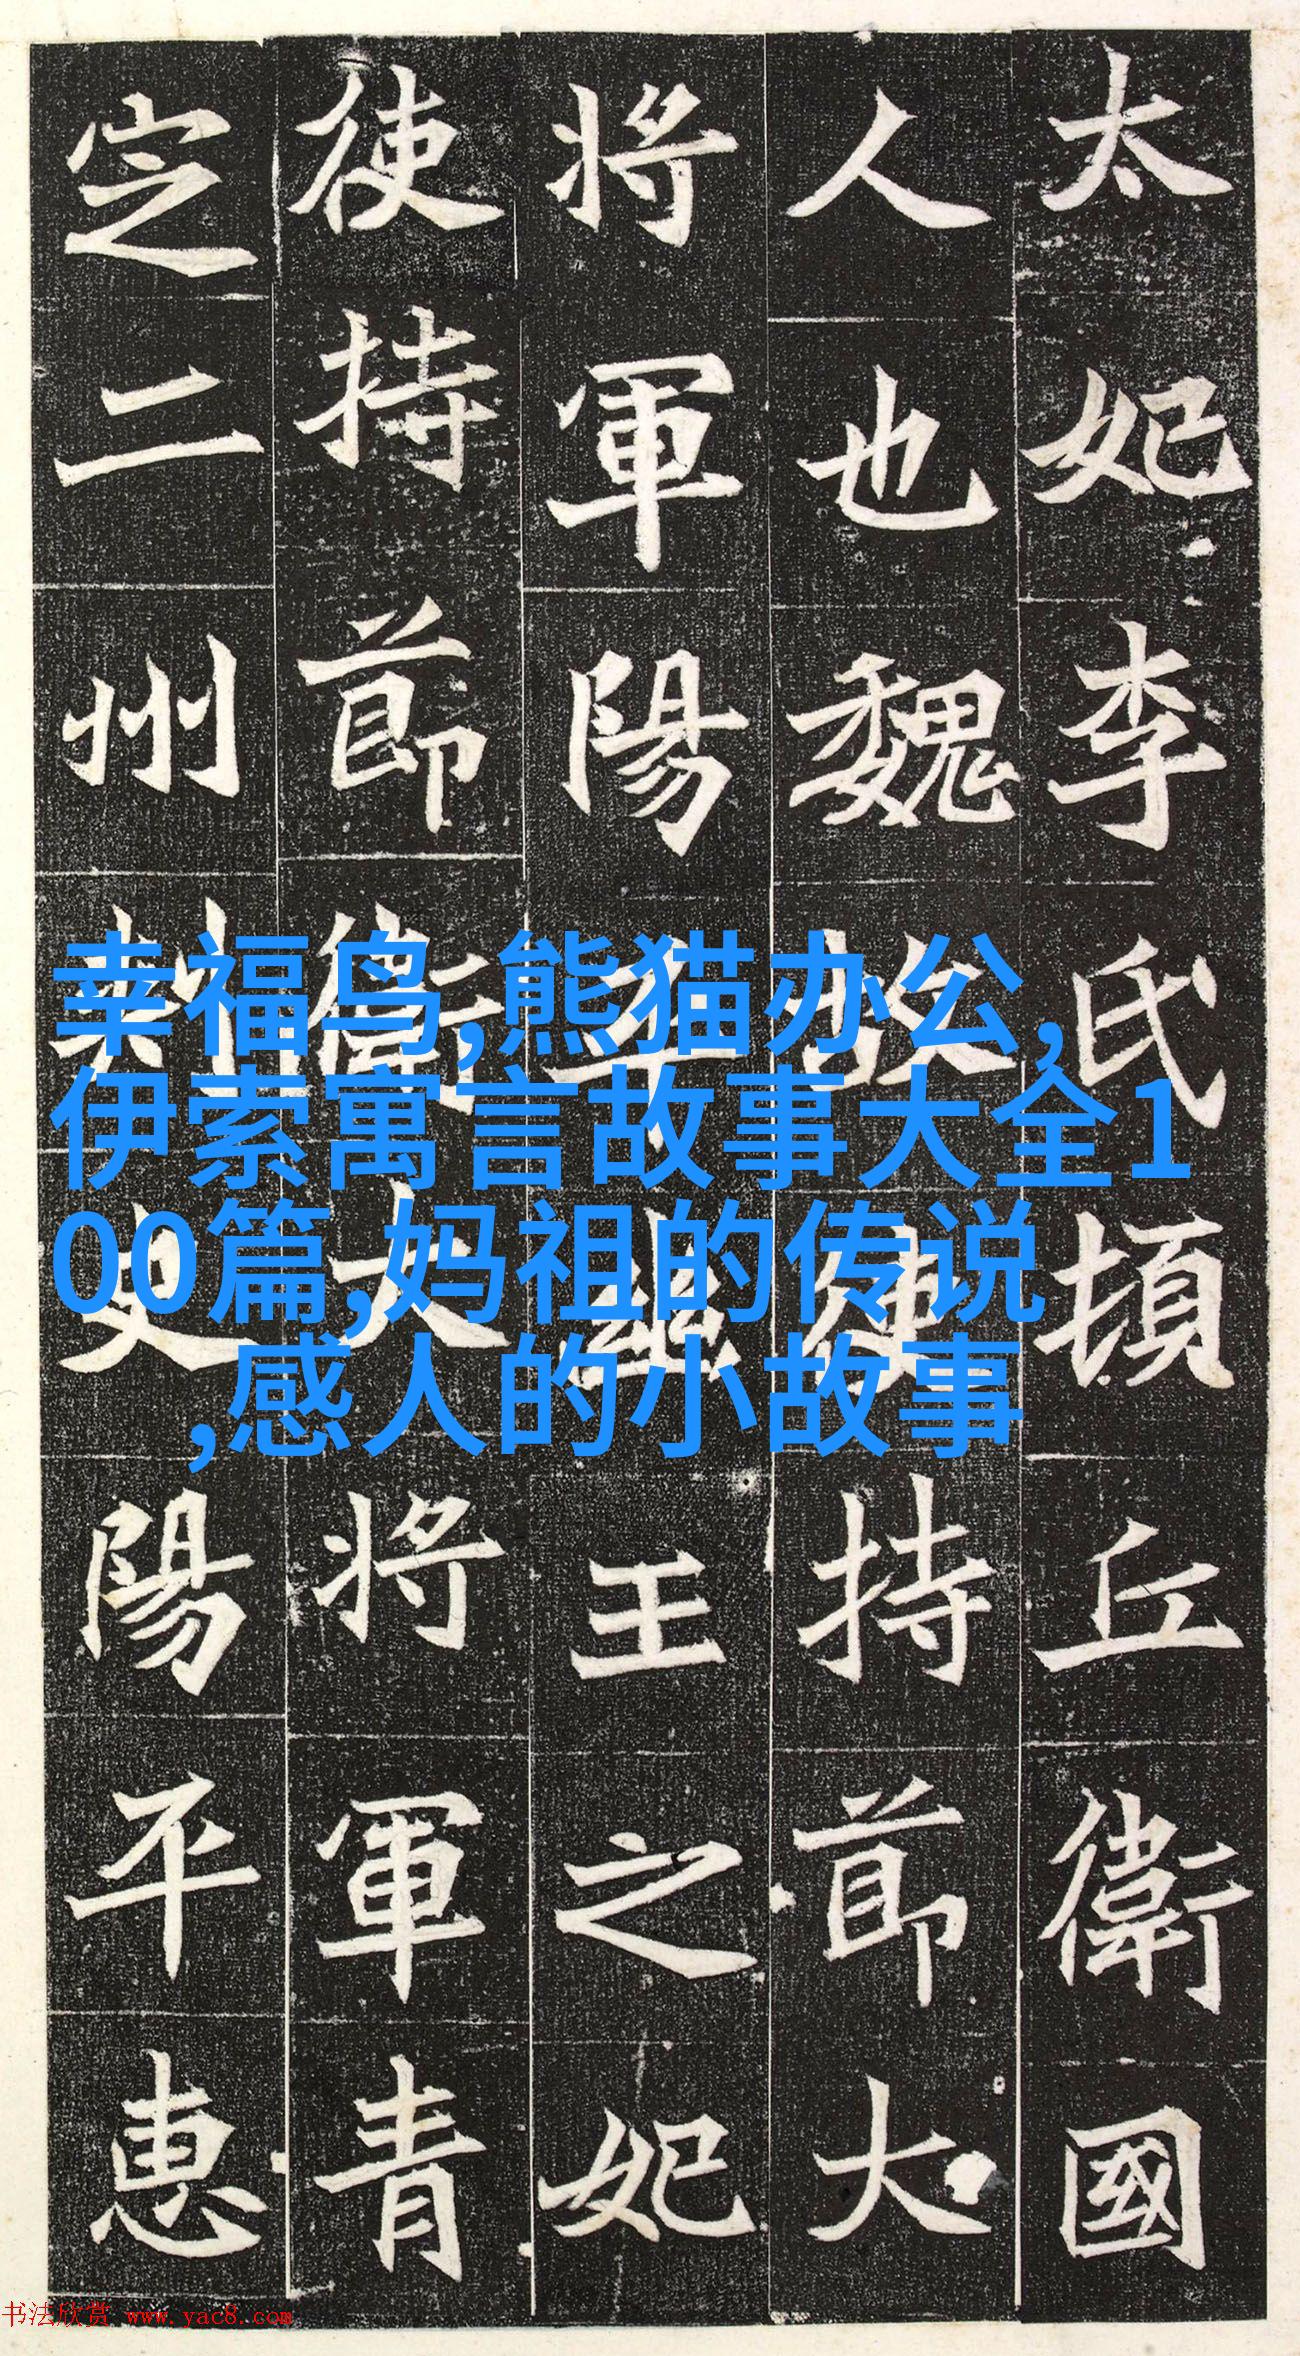 太妃李氏頓丘衛國
人也魏故使持節大
將軍陽平幽王之妃
使持節衛大將軍青
定二州刺史陽平惠
幸福鸟,熊猫办公,
伊索寓言故事大全1
00篇,妈祖的传说
,感人的小故事
书法欣赏 www.yac8.com